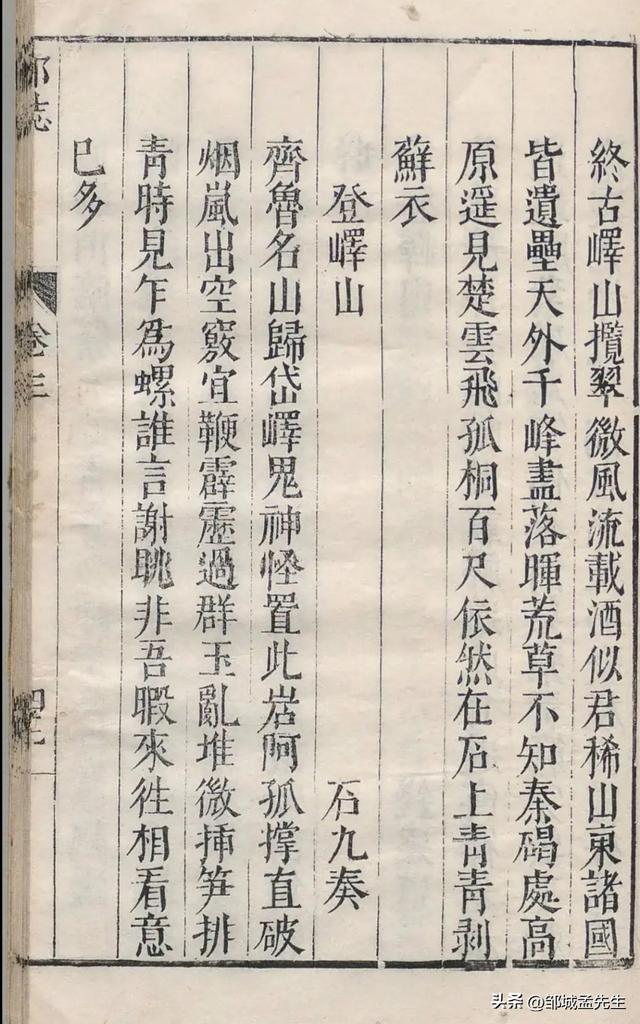 終古嶧山攬翠微風流載酒似君稀山東諸國
皆遺壘天外千峰盡落暉荒草不知秦碣處高
原遥見楚雲飛孤桐百尺依然在石上青青剥
蘚衣
登嶧山 石九奏
齊魯名山歸岱嶧鬼神怪置此岩阿孤撑直破
烟嵐出空竅宜鞭霹靂過群玉亂堆微揷笋排
青時見乍為螺誰言謝眺非吾暇來徃相看意
已多
卷三
头条 @邹城孟先生